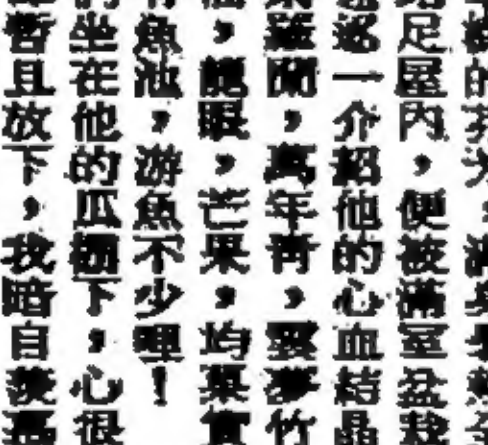 足屋內，便被滿室盆栽
逐一介紹他的心血結晶
羅蘭，萬年青，雲夢竹
，龍眼，芒果，均果實
魚池，游魚不少哩！
坐在他的瓜棚下，心很
暫且放下，我暗自羨